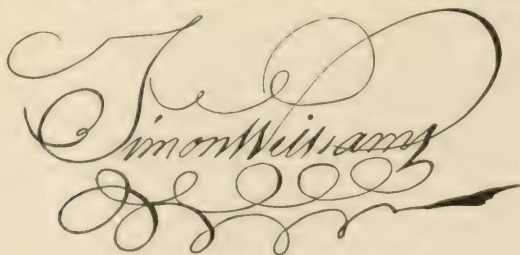 Simon Williams